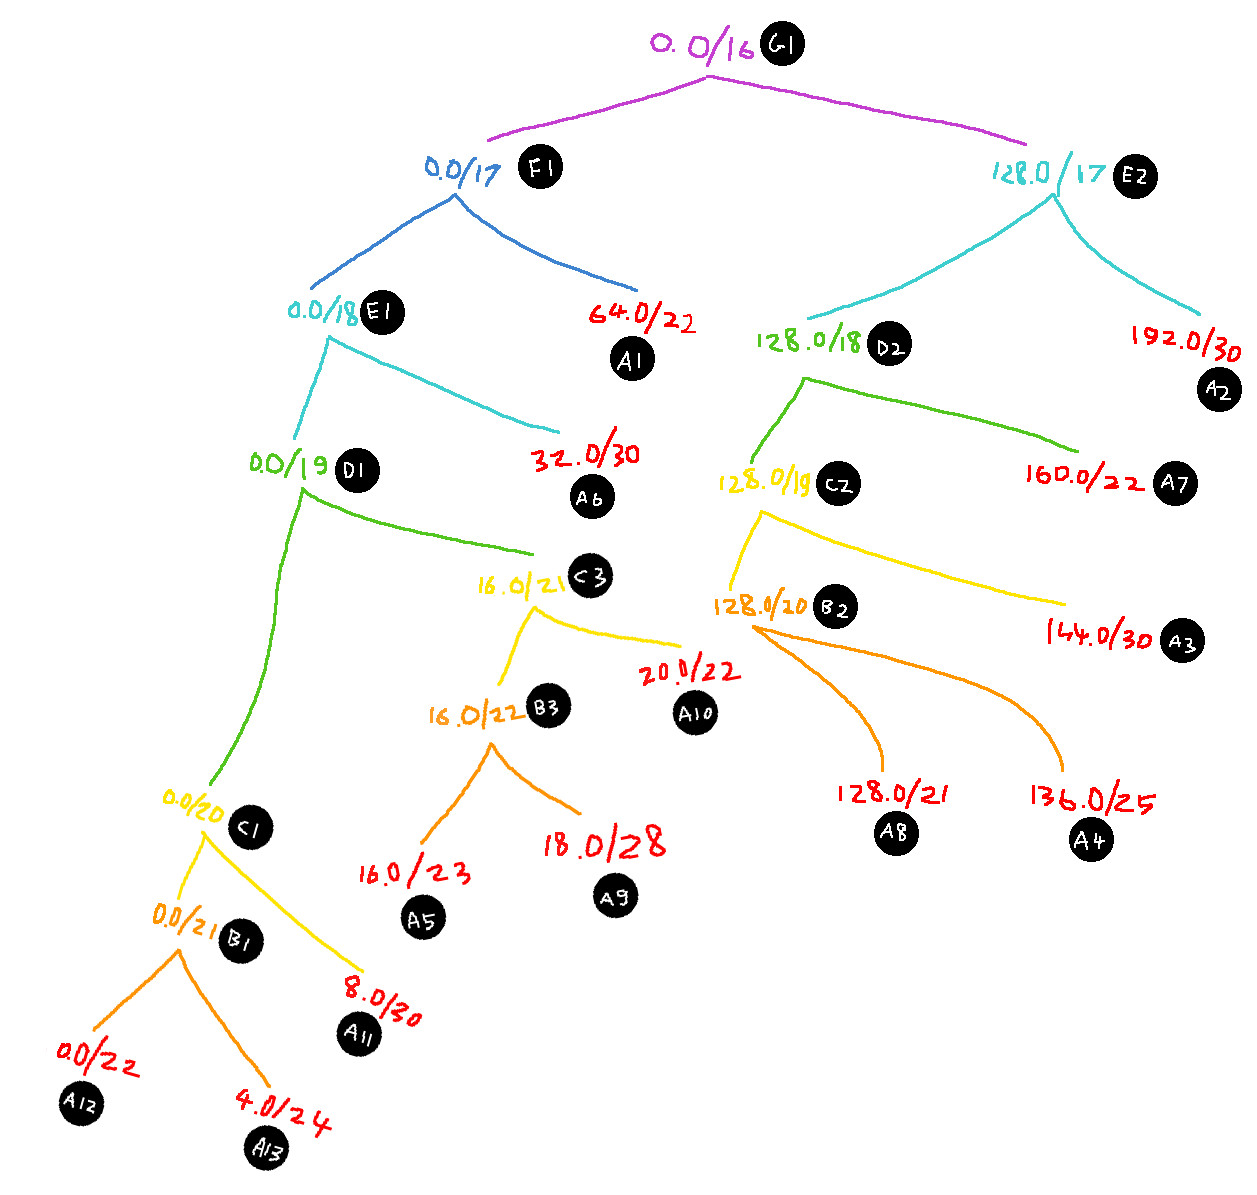 0.0/16 G1
0.0/17 F1
128.0/17 E2
0.0/18 E1
64.0/22
A1
128.0/18 D2
192.0/30
A2
0.0/19 D1
32.0/30
A6
128.0/19 C2
160.0/22 A7
16.0/21 C3
128.0/20 B2
144.0/30 A3
20.0/22
A10
16.0/22 B3
0.0/20 C1
128.0/21
A8
136.0/25
A4
16.0/23
A5
18.0/28
A9
0.0/21 B1
8.0/30
A11
0.0/22
A12
4.0/24
A13